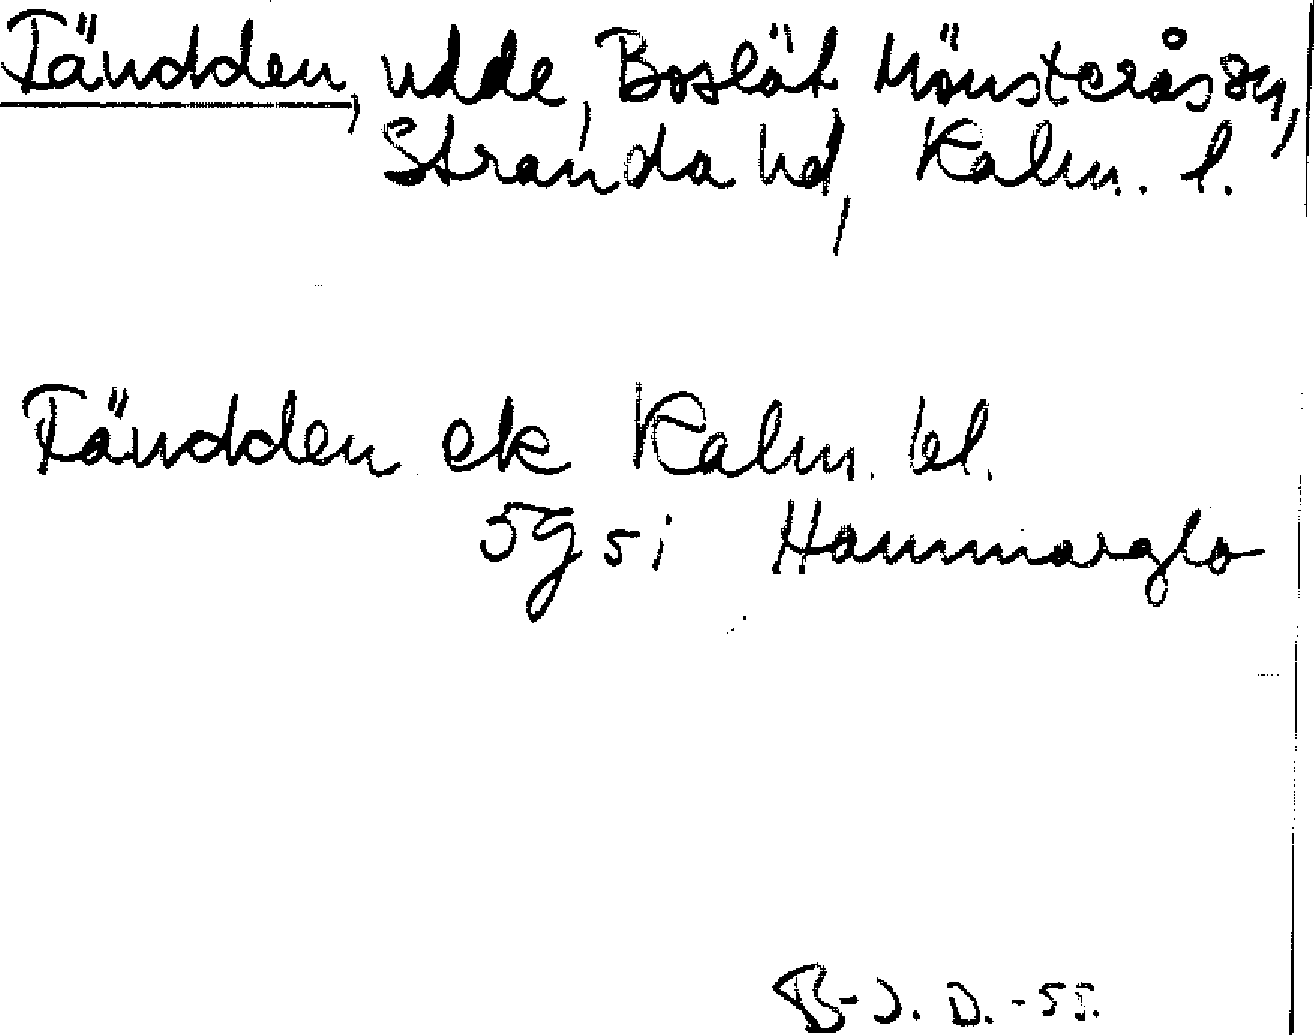 Täudden, udde, Boslät, Mönsterås sn,
Stranda hd, Kalm. l.
Täudden ek Kalm. bl.
5g 5i Hammarglo
B-J. D. -55.